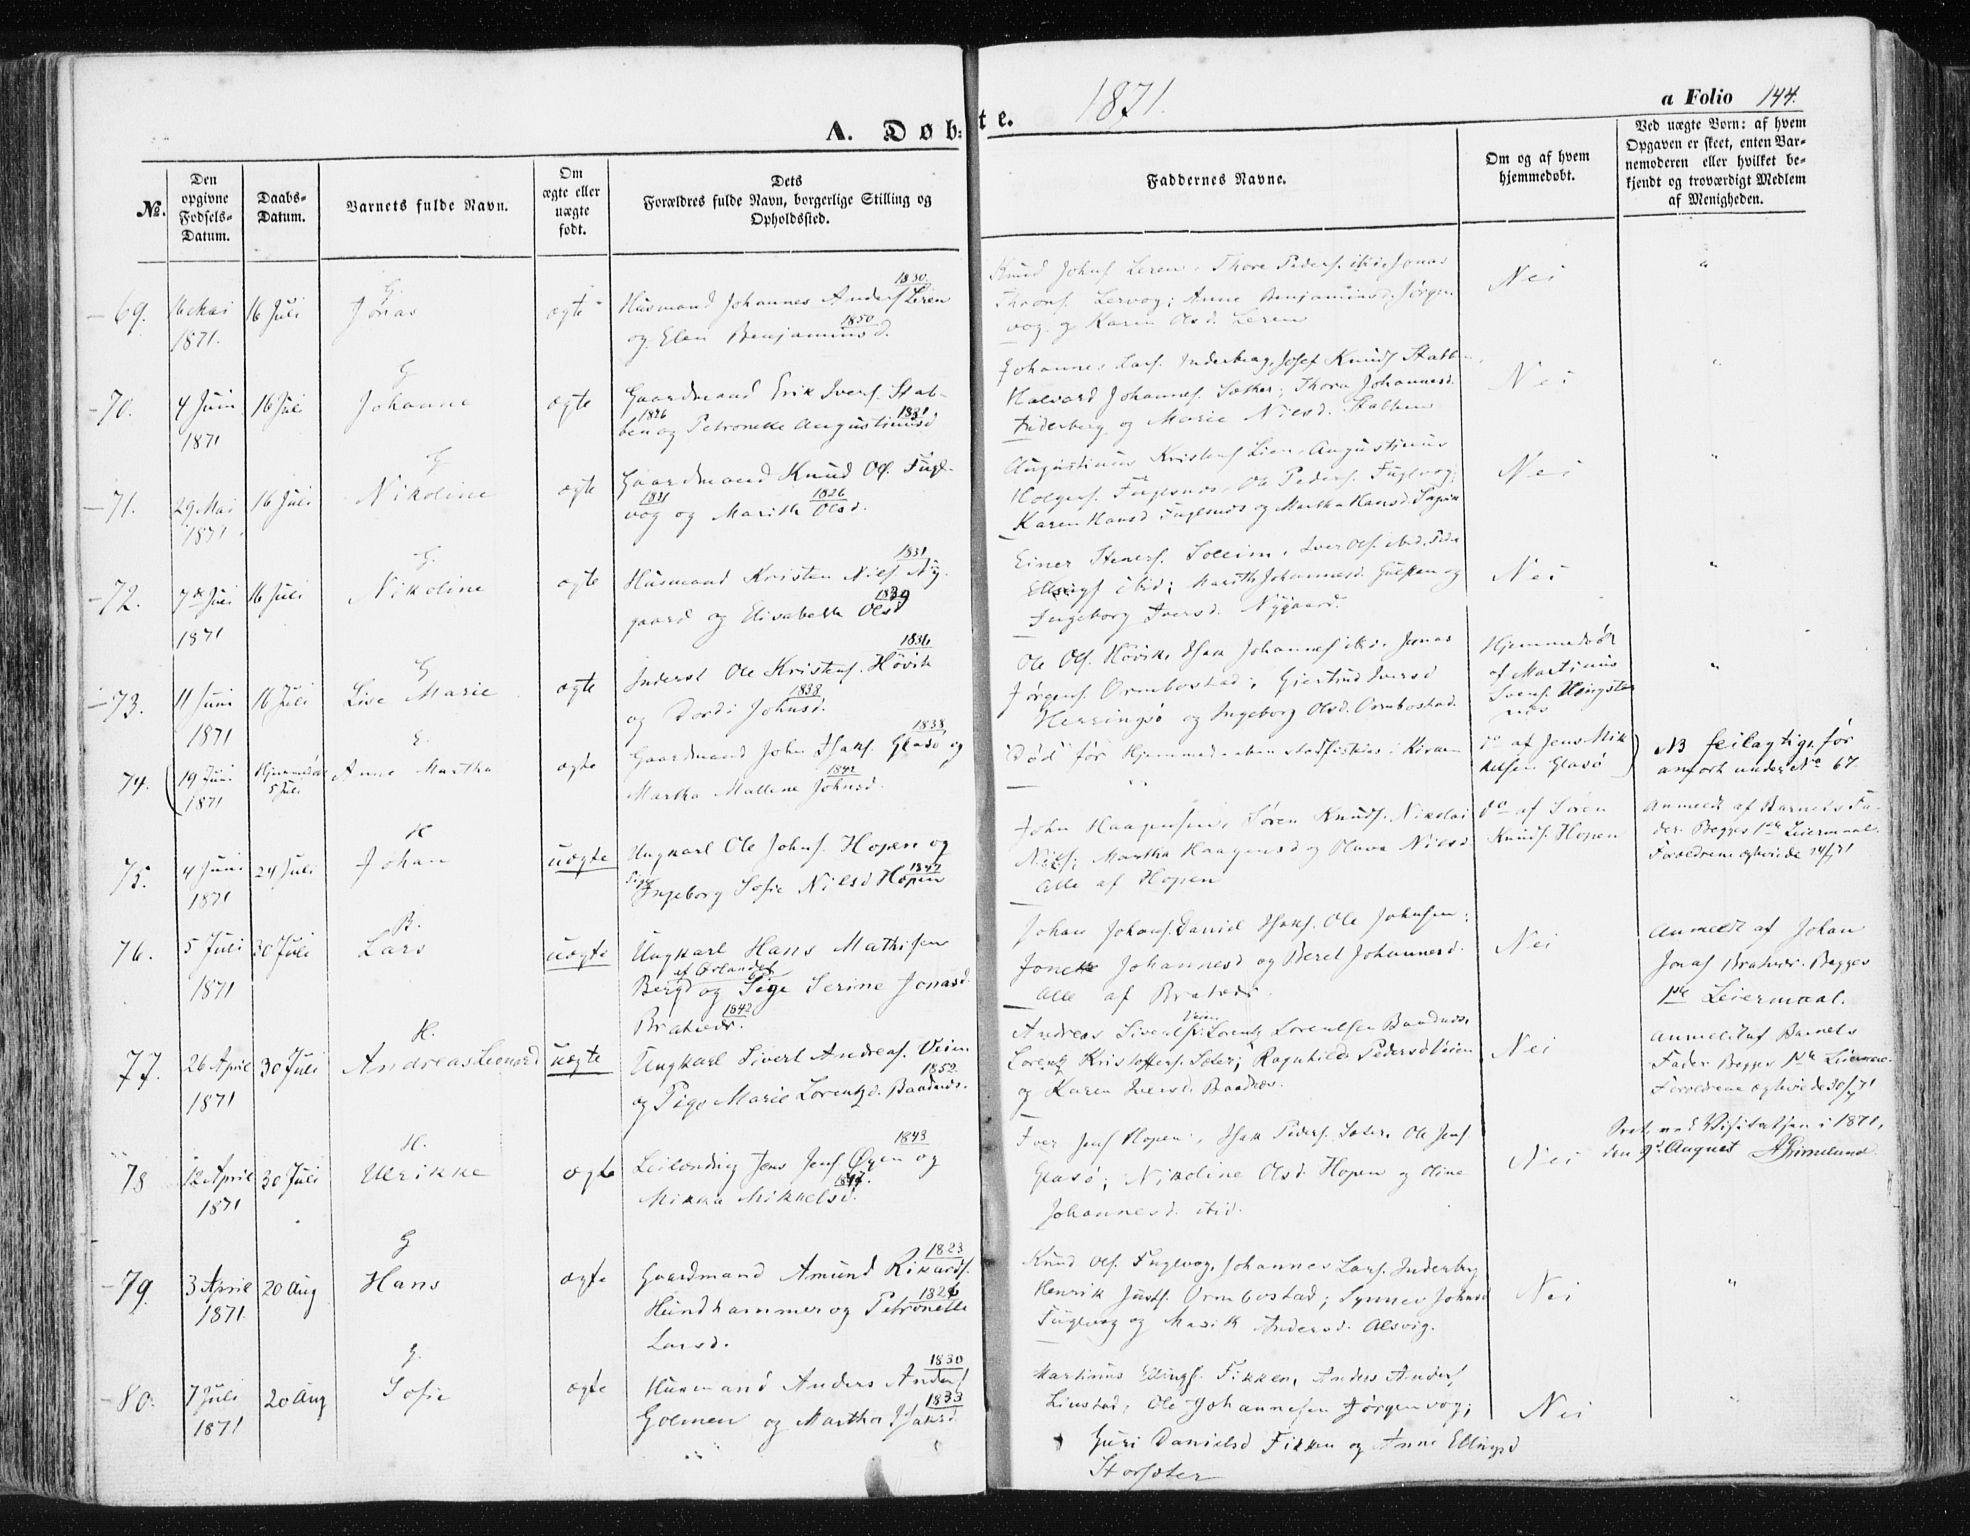 1871.
a Folio 144.
A. Døbte.
No.
Den opgivne Fødsels-Datum.
Daabs-Datum.
Barnets fulde Navn.
Om ægte eller uægte født.
Dets Forældres fulde Navn, borgerlige Stilling og Opholdssted.
Faddernes Navne.
Om og af hvem hjemmedøbt.
Ved uægte Børn: af hvem Opgaven er skeet, enten Barnemoderen eller hvilket bekjendt og troværdigt Medlem af Menigheden.
69. 16 Mai 1871. 16 Juli
G.
Jonas
ægte
1830
Husmand Johannes Anders. Leren
1850
og Elen Benjaminsd.
Knud Johns. Leren, Thore Peders. ibid, Jonas
Throns. Lervog; Anne Benjaminsd. Jørgen-
vog og Karen Olsd. Leren
Nei
"
70. 4 Juni 1871 16 Juli
G
Johanne
ægte
Gaardmand Erik Ivers. Stab-
1826 1831
ben og Petronelle Augustinusd
Johannes Lars. Inderberg, Josef Knuds. Stabben,
Halvard Johannes. Sæther; Thora Johannesd.
Inderberg og Marie Nilsd. Stabben
Nei
"
71. 29 Mai 1871 16 Juli
G
Nikoline
ægte
Gaardmand Knud Ols. Fugl-
1831 1826
vog og Marith Olsd.
Augustinus Kristens. Lien, Augustinus
Holgers. Fuglsnes, Ole Peders. Fuglvog;
Karen Hansd Fuglsnes og Martha Hansd.
Nei
"
72. 7de Juli 1871 16 Juli
G.
Nikoline
ægte
1831
Husmand Kristen Nils. Ny-
1839
gaard og Elisabeth Olsd
Einer Steners. Soleim, Iver Ols. ibid, Peder
Ellings ibid; Marith Johannesd. Gulsten og
Ingeborg Iversd. Nygaard.
Nei
"
73. 11 Juni 1871 16 Juli
G
Lise Marie
ægte
1836
Inderst Ole Kristens. Høvik
1838
og Dordi Johnsd.
Ole Ols. Høvik, Isak Johannes ibid. Jonas
Jørgens. Ormbostad; Giertrud Iversd
Herringsø og Ingeborg Olsd. Ormbostad.
Hjemmedøbt
af Martinus
Svens. Hengsten
nes
"
74. 19 Juni 1871 Hjemmedøbt 5 Juli
G.
Anne Martha
ægte
1838
Gaardmand John Isaks. Glasø og
1842
Martha Mallene Johnsd.
"Død" før Hjemmedaaben stadfæstes i Kirken
do af Jens Mik
kelsen Glasø
NB feilagtig, før
anført under No 67.
75. 4 Juni 1871 24 Juli
H
Johan
uægte
Ungkarl Ole Johns. Hopen og
Pige 1847
Ingeborg Sofie Nilsd Hopen
John Haagensen, Søren Knuds. Nikolai
Nils; Martha Haagensd og Olava Nilsd
Alle af Hopen
do af Søren
Knuds. Hopen
Anmeldt af Barnets Fa-
der. Begges 1ste Leiermaal.
Forældrene egteviede 24/7 71
76. 5 Juli 1871 30 Juli
B.
Lars
uægte
Ungkarl Hans Mathisen
af Ørlandet
Berg og Pige Serine Jonasd
1842
Bratvær.
Johan Johans. Daniel Isaks. Ole Johnsen;
Jonette Johannesd og Beret Johannesd.
Alle af Bratvær.
Nei
Anmeldt af Johan
Jonas Bratvær. Begges
1ste Leiermaal.
77. 26 April 1871 30 Juli
H.
Andreas Leonard
uægte
Ungkarl Sivert Andreas. Veien
1852
og Pige Marie Lorentzd. Baadnes.
Veien
Andreas Sivertsf. Lorentz Lorentsen Baadnæs,
Lorentz Kristoffers. Sæter; Ragnhild Pedersd Veien
og Karen Iversd. Baadnæs.
Nei
Anmeldt af Barnets
Fader Begges 1ste Leiermaal
Forældrene egteviede 30/7 71
78 12 April 1871 30 Juli
H.
Ulrikke
ægte
1843
Leilending Jens Jens. Øyen og
1847.
Mikka Mikkelsd.
Iver Jens Hopen, Isak Peders. Sæter, Ole Jens
Glasø; Nikoline Olsd Hopen og Oline
Johannesd. ibid.
Nei
Seet ved Visitatsen i 1871,
den 9d. August AGrimelund.
79. 3 April 1871. 20 Aug
G
Hans
ægte
1823
Gaardmand Amund Rikards.
1826
Hundhammer og Petronelle
Larsd.
Knud Ols. Fuglvog, Johannes Lars. Inderberg
Henrik Justs. Ormbostad; Synnev Johnsd
Fuglvog og Marik Andersd. Alsvig.
Nei
"
80. 7 Juli 1871 20 Aug
G.
Sofie
ægte
1830
Husmand Anders Anders
1833
Golmen og Martha Isaksd.
Martinus Ellings. Fikken, Anders Anders
Linstad, Ole Johannesen Jørgenvog;
Guri Danielsd Fikken og Anne Ellingsd
Storsæter
Nei
"